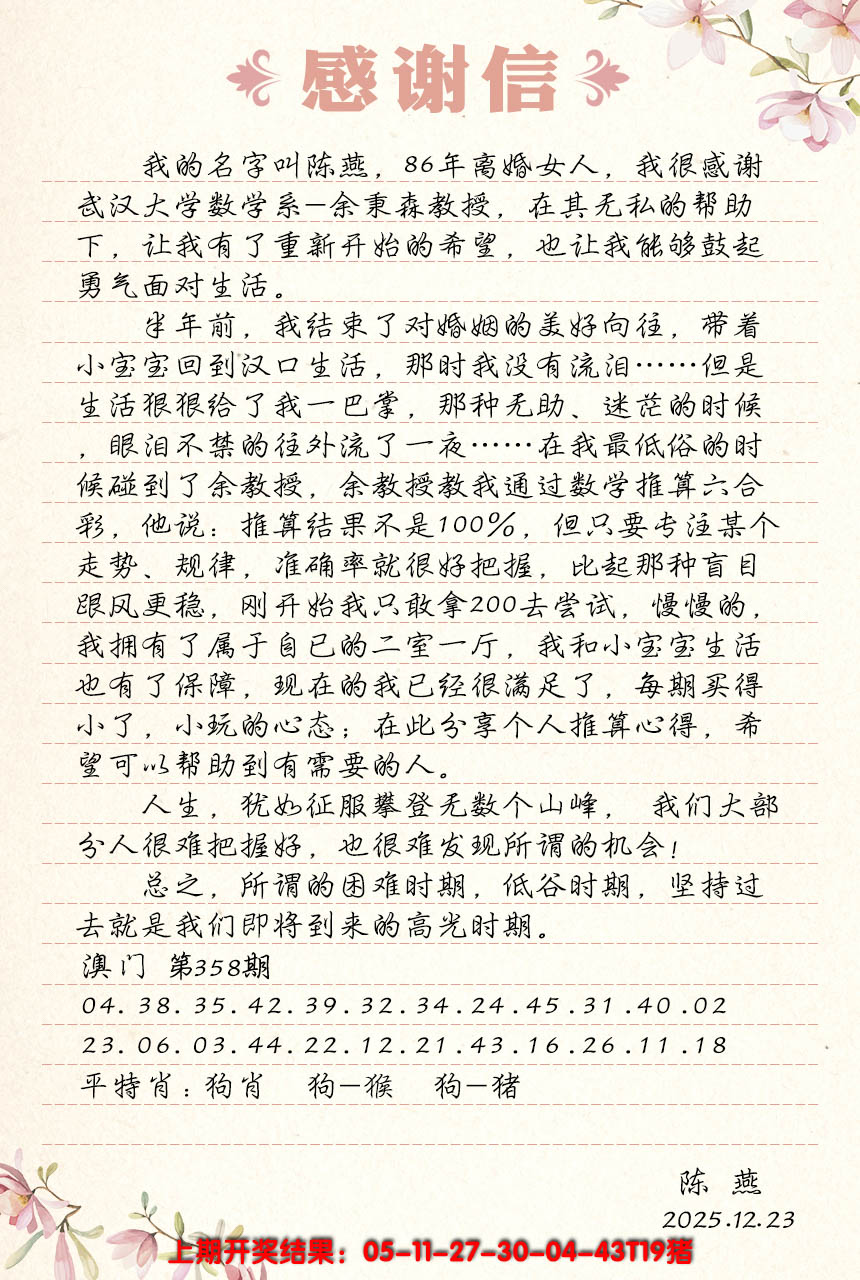 感谢信
我的名字叫陈燕，86年离婚女人，我很感谢
武汉大学数学系—余秉森教授，在其无私的帮助
下，让我有了重新开始的希望，也让我能够鼓起
勇气面对生活。
半年前，我结束了对婚姻的美好向往，带着
小宝宝回到汉口生活，那时我没有流泪……但是
生活狠狠给了我一巴掌，那种无助、迷茫的时候
，眼泪不禁的往外流了一夜……在我最低俗的时
候碰到了余教授，余教授教我通过数学推算六合
彩，他说：推算结果不是100%，但只要专注某个
走势、规律，准确率就很好把握，比起那种盲目
跟风更稳，刚开始我只敢拿200去尝试，慢慢的，
我拥有了属于自已的二室一厅，我和小宝宝生活
也有了保障，现在的我已经很满足了，每期买得
小了，小玩的心态；在此分享个人推算心得，希
望可以帮助到有需要的人。
人生，犹如征服攀登无数个山峰， 我们大部
分人很难把握好，也很难发现所谓的机会！
总之，所谓的困难时期，低谷时期，坚持过
去就是我们即将到来的高光时期。
澳门 第358期
04.38.35.42.39.32.34.24.45.31.40.02
23.06.03.44.22.12.21.43.16.26.11.18
平特肖：狗肖 狗—猴 狗—猪
陈 燕
2025.12.23
上期开奖结果：05-11-27-30-04-43T19猪